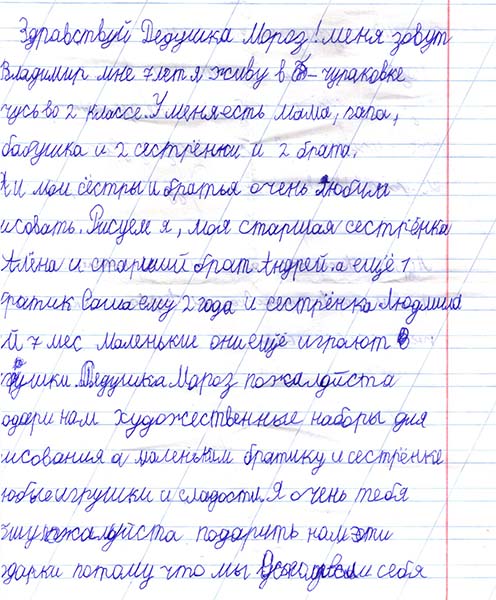 Здравствуй Дедушка Мороз! меня зовут
Владимир мне 7 лет я живу в Б-чураковке
чусь во 2 классе. У меня есть мама, папа,
бабушка и 2 сестрёнки и 2 брата.
и мои сёстры и братья очень любим
исовать. Рисуем я, моя старшая сестрёнка
Алёна и старший брат Андрей. а ещё 1
ратик Саша ему 2 года и сестрёнка Людмила
й 7 мес маленькие они ещё играют в
ушки. Дедушка Мороз пожалдйста
одари нам художественные наборы для
исования а маленьким братику и сестрёнке
юбые игрушки и сладости. Я очень тебя
подарить нам эти
дарки потому что мы себя